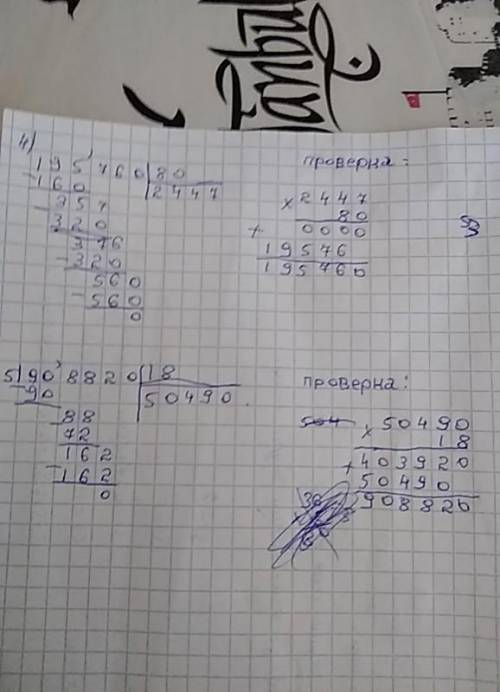 4)
195760 80
-160 2447
-357
320
-376
320
-560
560
0
проверка:
×2447
80
+0000
19576
195760
5) 908820 18
-90 50490
-88
72
-162
162
0
проверка:
504
×50490
18
+403920
50490
908820